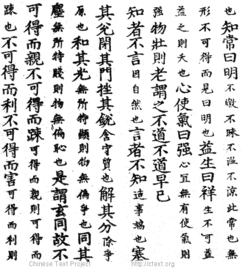 也知常曰明不皦不昧不溫不涼此常也無
形不可得而見曰明也益生曰祥生不可益
益之則夭也心使氣曰強心宜無有使氣則
強物壯則老謂之不道不道早已
知者不言因自然也言者不知造事端也塞
其兌閉其門挫其銳含守質也解其分除爭
原也和其光無所特顯則物無偏爭也同其
塵無所特賤則物無偏恥也是謂玄同故不
可得而親不可得而踈可得而親則可得而
踈也不可得而利不可得而害可得而利則
Chinese Text Project